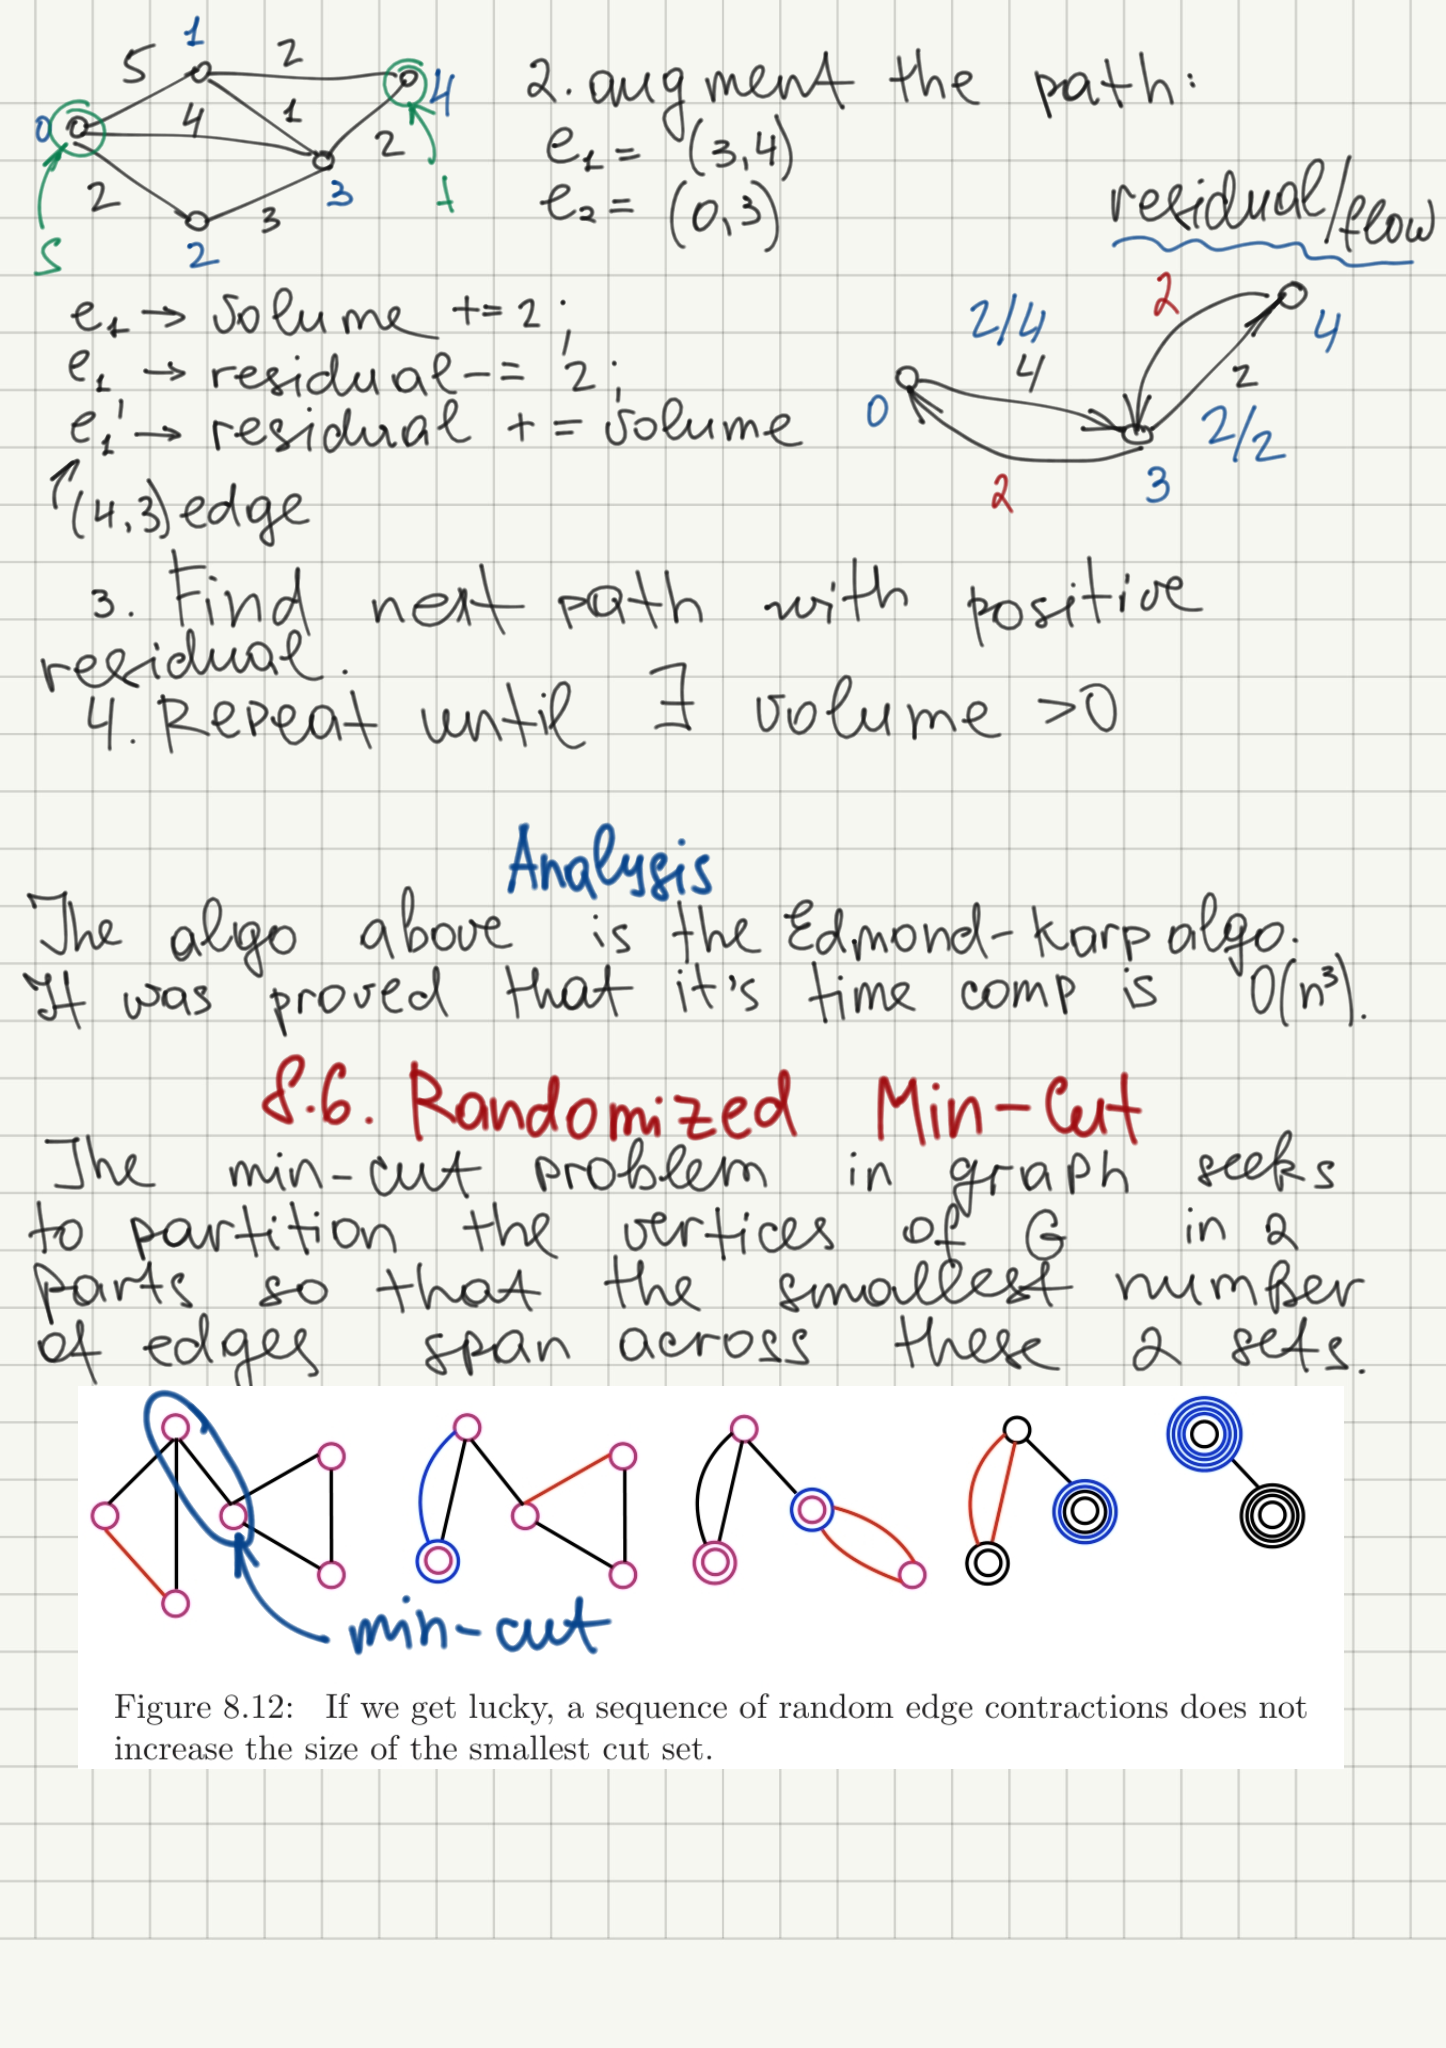 5 1 2
0 4 1 4
2 3 2
S 2 3 t
2. augment the path:
e₁ = (3,4)
e₂ = (0,3)
residual/flow
e₁ → volume += 2;
e₁ → residual -= 2;
e₁' → residual += volume
(4,3) edge
2/4 2 4
0 4 2
2 3 2/2
3. Find next path with positive
residual.
4. Repeat until ∃ volume >0
Analysis
The algo above is the Edmond-Karp algo.
It was proved that it's time comp is O(n³).
8.6. Randomized Min-Cut
The min-cut problem in graph seeks
to partition the vertices of G in 2
parts so that the smallest number
of edges span across these 2 sets.
min-cut
Figure 8.12: If we get lucky, a sequence of random edge contractions does not
increase the size of the smallest cut set.